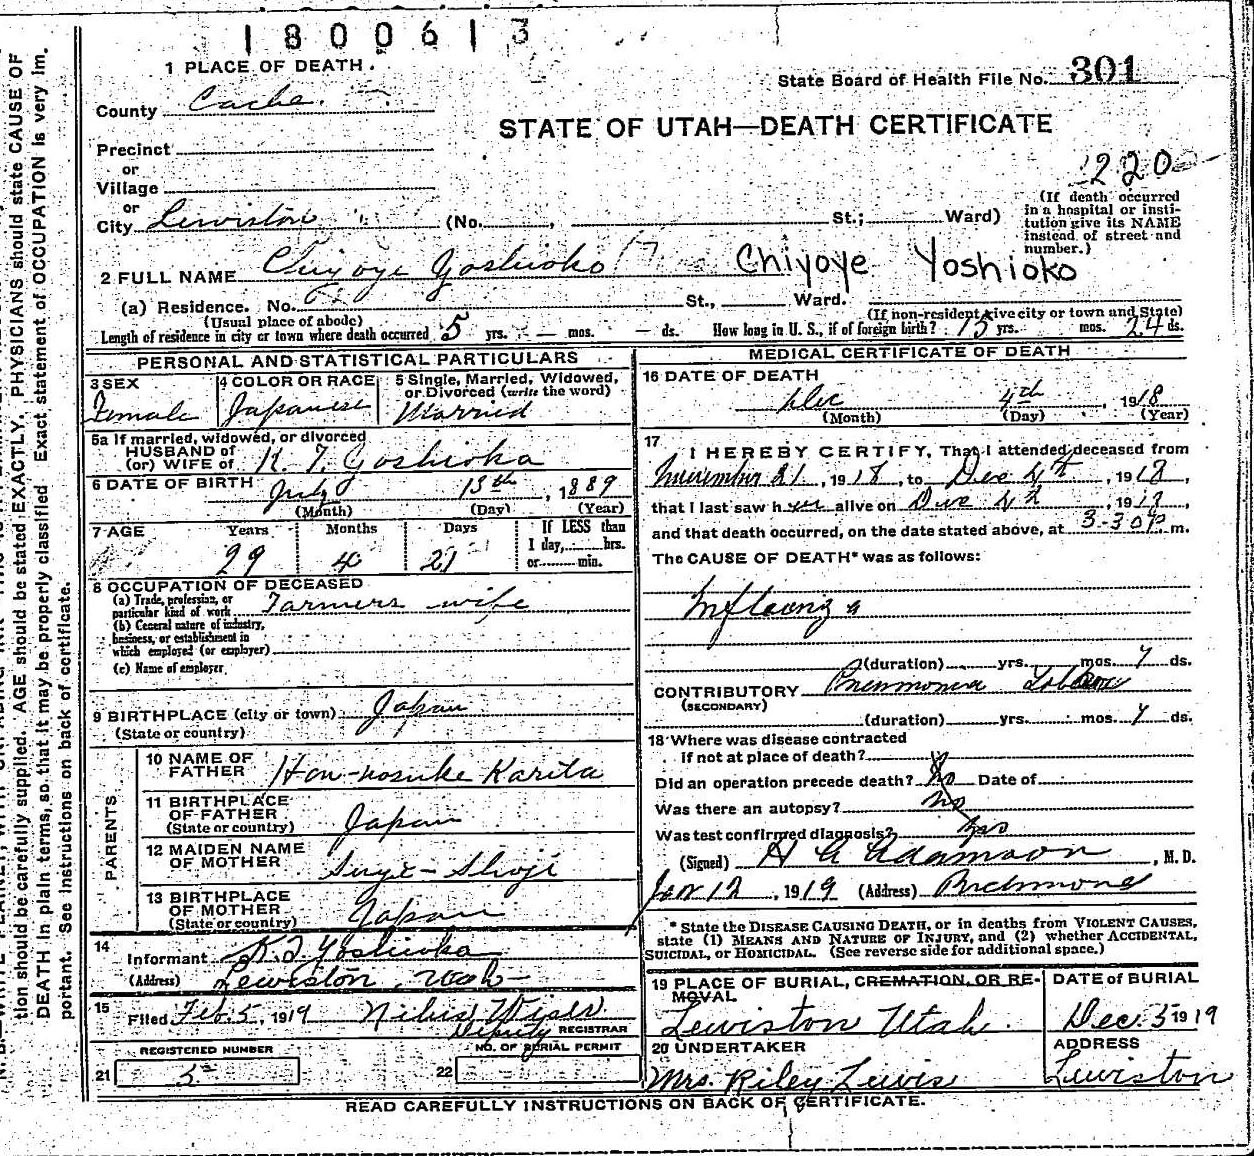 1800613
1 PLACE OF DEATH.
State Board of Health File No. 301
County Cache.
STATE OF UTAH—DEATH CERTIFICATE
Precinct
or
Village
220
or
City Lewiston (No. , St.; Ward)
(If death occurred
in a hospital or insti-
tution give its NAME
instead of street and
number.)
2 FULL NAME Chiyoye Yoshioko Chiyoye Yoshioko
(a) Residence. No. St., Ward.
(Usual place of abode)
(If non-resident give city or town and State)
Length of residence in city or town where death occurred 5 yrs. — mos. — ds. How long in U. S., if of foreign birth? 15 yrs. mos. 24 ds.
PERSONAL AND STATISTICAL PARTICULARS
3 SEX
Female
4 COLOR OR RACE
Japanese
5 Single, Married, Widowed,
or Divorced (write the word)
Married
5a If married, widowed, or divorced
HUSBAND of
(or) WIFE of K. T. Yoshioka
6 DATE OF BIRTH July 13th, 1889
(Month) (Day) (Year)
7 AGE Years Months Days
29 4 21
If LESS than
1 day, hrs.
or min.
8 OCCUPATION OF DECEASED
(a) Trade, profession, or
particular kind of work Farmers wife
(b) General nature of industry,
business, or establishment in
which employed (or employer)
(c) Name of employer
9 BIRTHPLACE (city or town) Japan
(State or country)
PARENTS
10 NAME OF
FATHER Han-nosuke Karita
11 BIRTHPLACE
OF FATHER
(State or country) Japan
12 MAIDEN NAME
OF MOTHER Suye - Shoji
13 BIRTHPLACE
OF MOTHER
(State or country) Japan
14
Informant K. T. Yoshioka
(Address) Lewiston, Utah
15
Filed Feb. 5, 1919 Wiser
Deputy REGISTRAR
REGISTERED NUMBER
21 5
NO. OF BURIAL PERMIT
22
MEDICAL CERTIFICATE OF DEATH
16 DATE OF DEATH
Dec 4th, 1918
(Month) (Day) (Year)
17
I HEREBY CERTIFY, That I attended deceased from
November 21, 1918, to Dec 4th, 1918,
that I last saw her alive on Dec 4th, 1918,
and that death occurred, on the date stated above, at 3-30 P m.
The CAUSE OF DEATH* was as follows:
Influenza
(duration) yrs. mos. 7 ds.
CONTRIBUTORY Pneumonia Lobar
(SECONDARY)
(duration) yrs. mos. 7 ds.
18 Where was disease contracted
If not at place of death?
Did an operation precede death? No Date of
Was there an autopsy? no
Was test confirmed diagnosis? yes
(Signed) H A Adamson, M. D.
Jan 12, 1919 (Address) Richmond
* State the DISEASE CAUSING DEATH, or in deaths from VIOLENT CAUSES,
state (1) MEANS AND NATURE OF INJURY, and (2) whether ACCIDENTAL,
SUICIDAL, or HOMICIDAL. (See reverse side for additional space.)
19 PLACE OF BURIAL, CREMATION, OR RE-
MOVAL
Lewiston Utah.
DATE of BURIAL
Dec. 5 1919
20 UNDERTAKER
Mrs. Riley Lewis
ADDRESS
Lewiston
READ CAREFULLY INSTRUCTIONS ON BACK OF CERTIFICATE.
tion should be carefully supplied. AGE should be stated EXACTLY. PHYSICIANS should state CAUSE OF
DEATH in plain terms, so that it may be properly classified. Exact statement of OCCUPATION is very im-
portant. See Instructions on back of certificate.